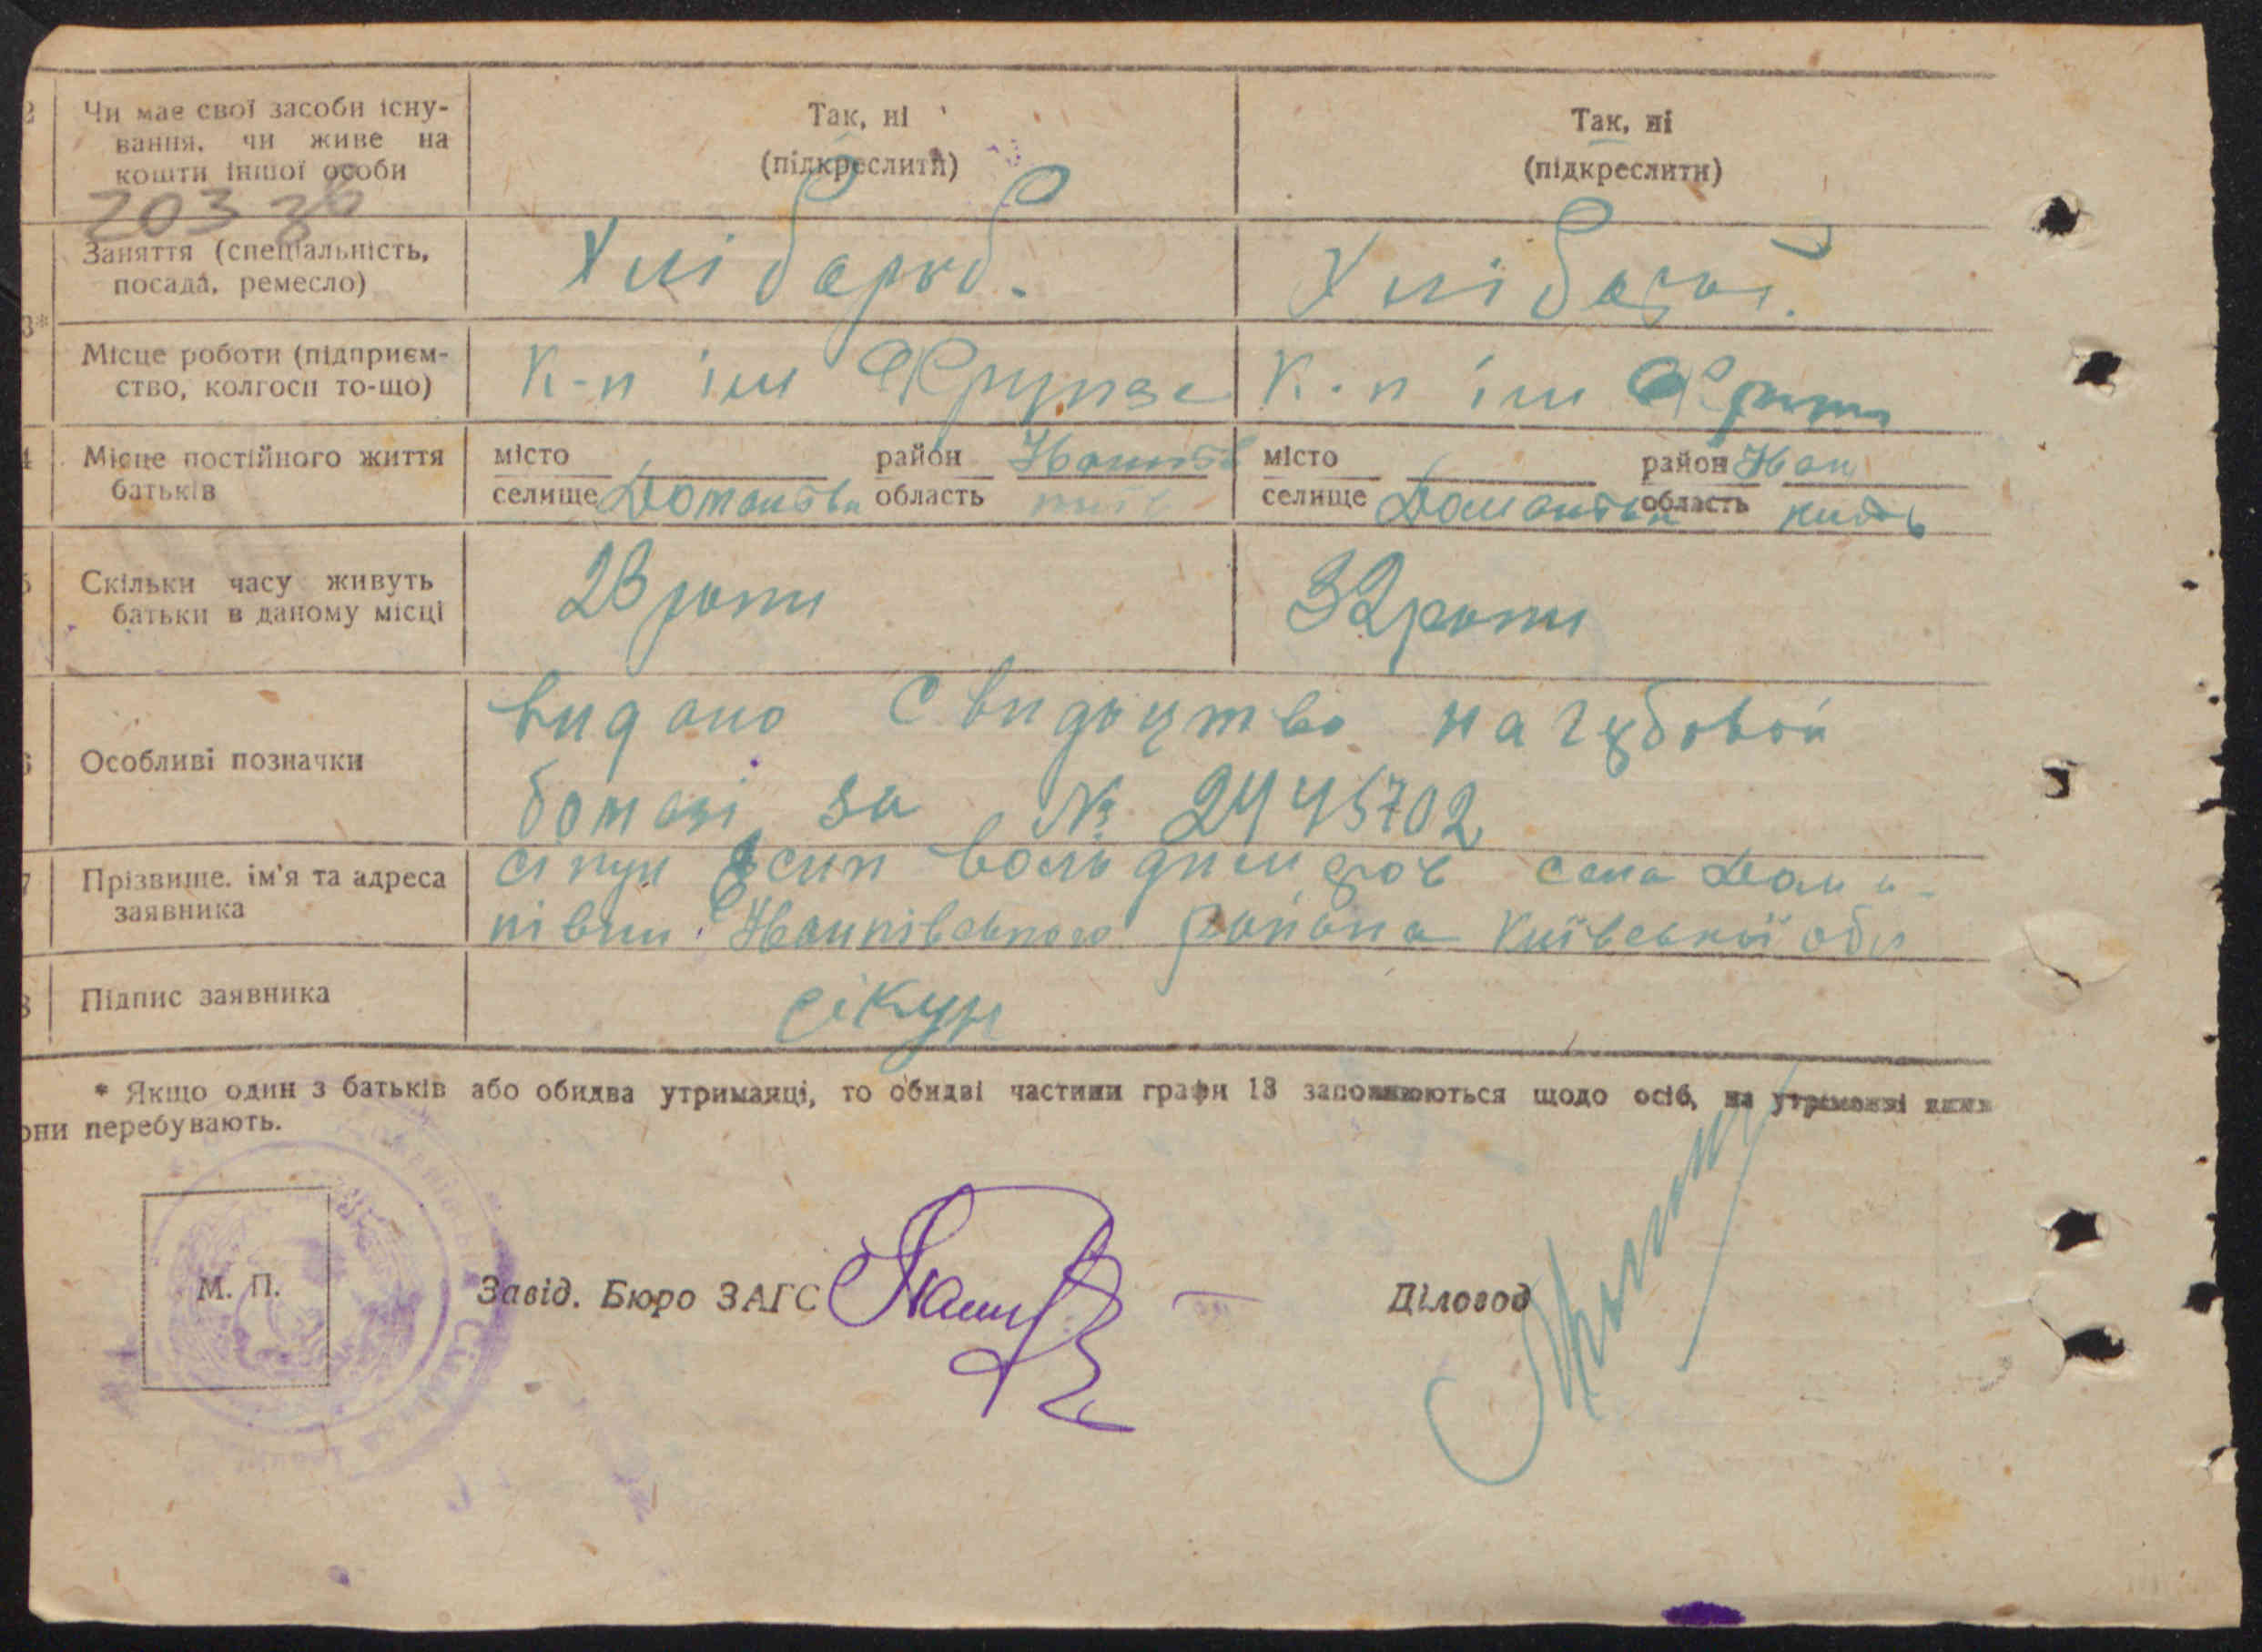 2 Чи має свої засоби існу-
вання, чи живе на
кошти іншої особи
Так, ні
(підкреслити)
Так, ні
(підкреслити)
203
Заняття (спеціальність,
посада, ремесло)
Хлібороб.
Хлібороб.
3*
Місце роботи (підприєм-
ство, колгосп то-що)
К-п ім Фрунзе
К-п ім
4 Місце постійного життя
батьків
місто район
селище область
місто район Иван
селище область
5 Скільки часу живуть
батьки в даному місці
23 роки
32 роки
6 Особливі позначки
видано Свидоцтво на гербовой
бомазі за № 2445702
7 Прізвище. ім'я та адреса
заявника
сікун Єсип володимиров села Дома-
нівки Иванківського района Київської обл
8 Підпис заявника
сікун
* Якщо один з батьків або обидва утриманці, то обидві частини графи 13 заповнюються щодо осіб, на утриманні яких
они перебувають.
М. П.
Завід. Бюро ЗАГС
Діловод